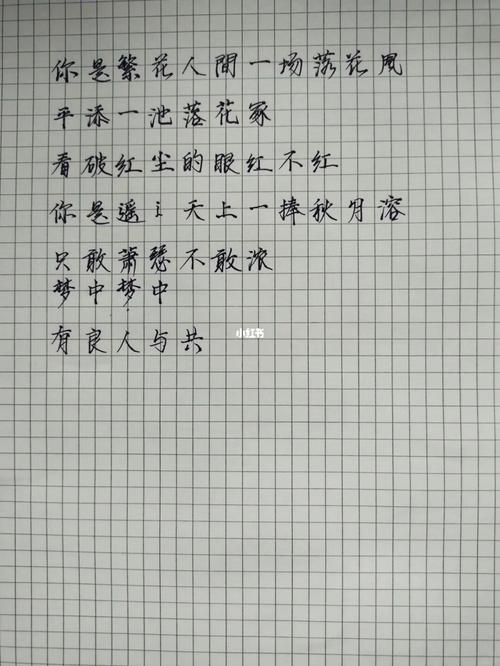 你是繁花人間一场落花風
平添一池落花冢
看破红尘的眼红不红
你是遥遥天上一捧秋月溶
只敢萧瑟不敢浓
梦中梦中
有良人与共
小红书